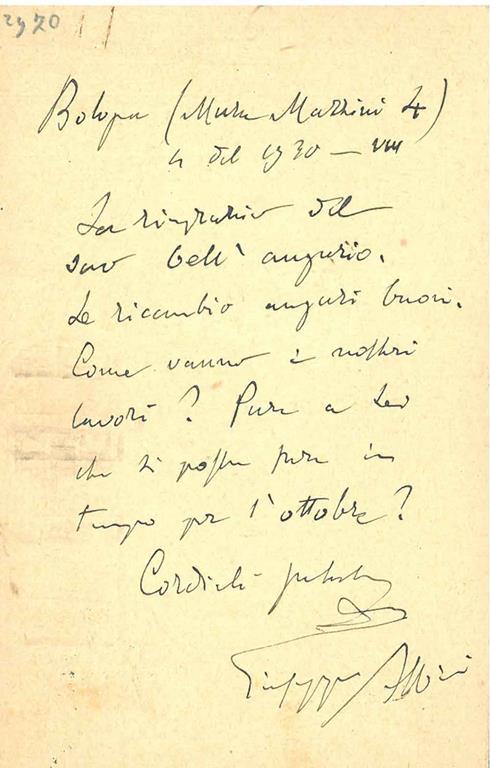 2970
Bologna (Mura Mazzini 4)
4 del 1930 — VIII
La ringrazio del
suo bell' augurio.
Le ricambio auguri buoni.
Come vanno i nostri
lavori? Pare a Lei
che si possa fare in
tempo per l'ottobre?
Cordiali saluti
Giuseppe Albini